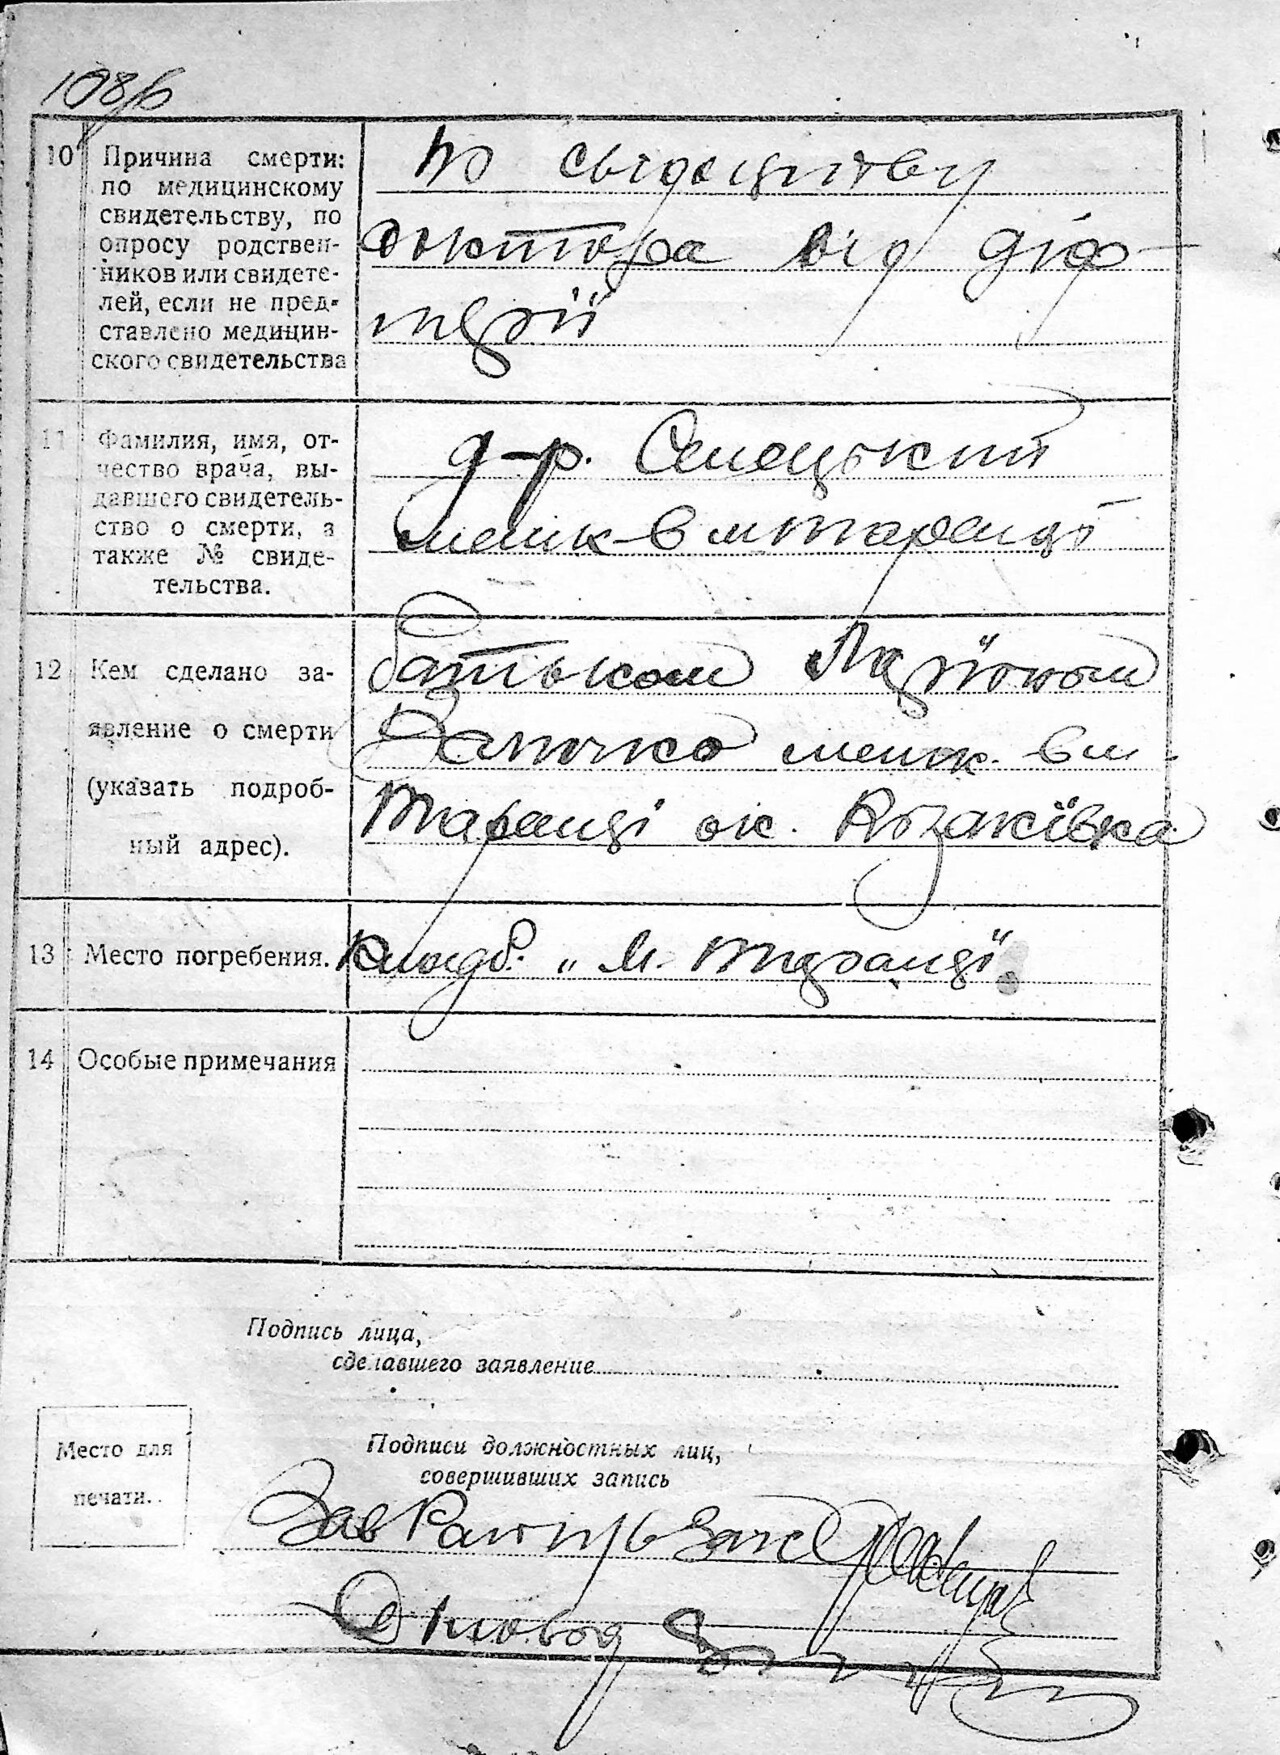 108б
10 Причина смерти:
по медицинскому
свидетельству, по
опросу родствен-
ников или свидете-
лей, если не пред-
ставлено медицин-
ского свидетельства
По свидоцитву
доктора від диф-
терії
11 Фамилия, имя, от-
чество врача, вы-
давшего свидетель-
ство о смерти, а
также № свиде-
тельства.
д-р. Селецький
мешк в м
12 Кем сделано за-
явление о смерти
(указать подроб-
ный адрес).
батьком
мешк. в м.
ок. Козаківка
13 Место погребения.
кладб. „М.
14 Особые примечания
Подпись лица,
сделавшего заявление
Место для
печати.
Подписи должностных лиц,
совершивших запись
Зав
Діловод